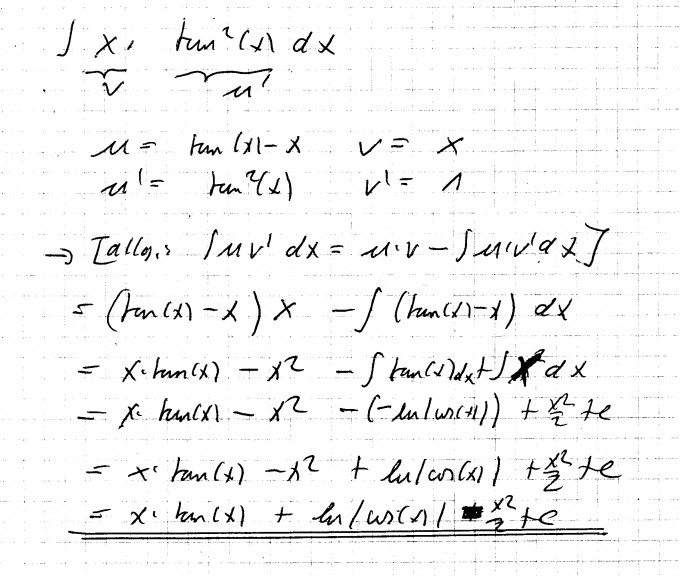 ∫ x · tan²(x) dx
v u'
u = tan(x) - x v = x
u' = tan²(x) v' = 1
→ [allg.: ∫ u v' dx = u·v - ∫ u·v' dx]
= (tan(x) - x) x - ∫ (tan(x) - x) dx
= x·tan(x) - x² - ∫ tan(x) dx + ∫ x dx
= x·tan(x) - x² - (-ln|cos(x)|) + x²/2 + c
= x·tan(x) - x² + ln|cos(x)| + x²/2 + c
= x·tan(x) + ln|cos(x)| - x²/2 + c